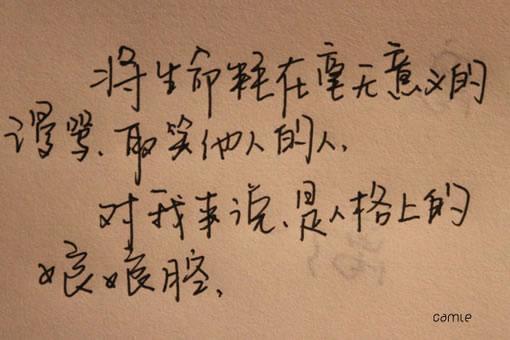 将生命耗在毫无意义的
谩骂、取笑他人的人、
对我来说、是人格上的
娘娘腔、
camle